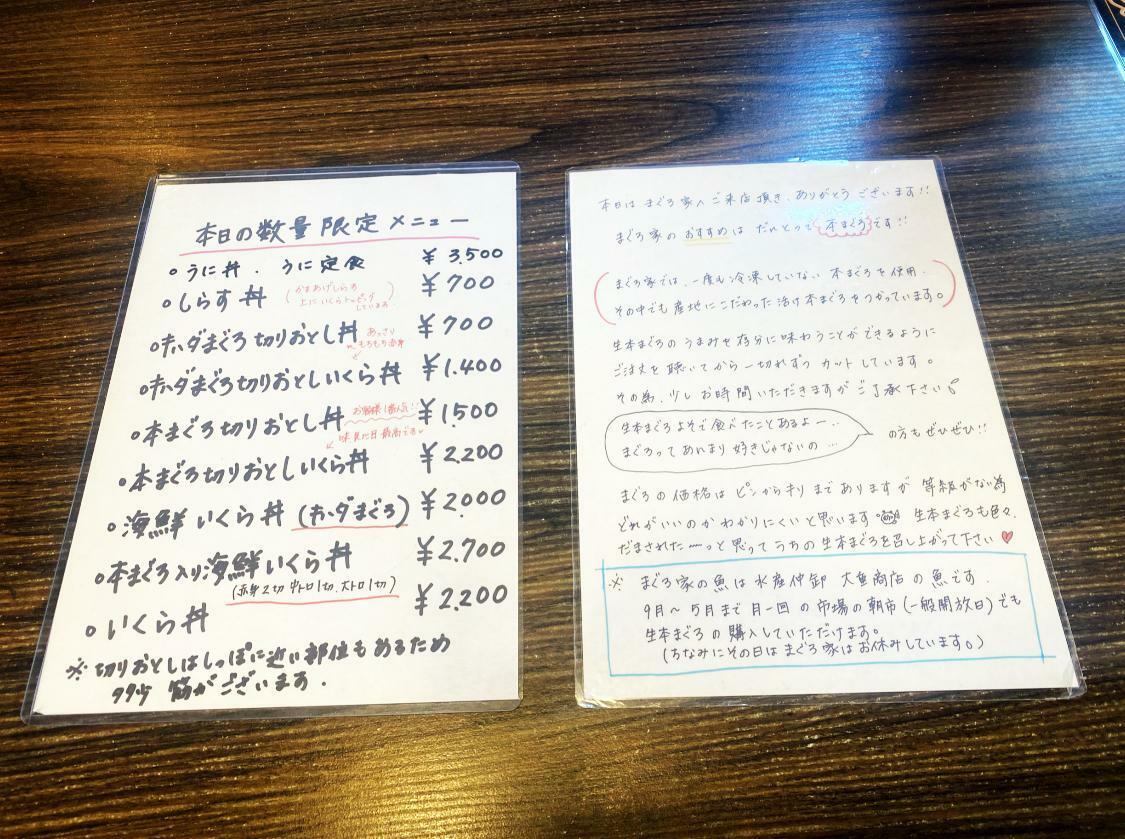 本日の数量限定メニュー
・うに丼、うに定食 ¥3,500
・しらす丼 (かまあげしらす ¥700
上にいくらトッピング
しています)
・キハダまぐろ切りおとし丼 あっさり ¥700
もちもち赤身
・キハダまぐろ切りおとしいくら丼 ¥1.400
・本まぐろ切りおとし丼 お客様1番人気!! ¥1500
味見た日最高でる
・本まぐろ切りおとしいくら丼 ¥2.200
・海鮮いくら丼(キハダまぐろ) ¥2.000
・本まぐろ入り海鮮いくら丼 ¥2.700
(赤身2切 中トロ1切、大トロ1切)
・いくら丼 ¥2.200
※切りおとしはしっぽに近い部位もあるため
多少 筋がございます.
本日は まぐろ家へご来店頂き、ありがとうございます!!
まぐろ家の おすすめは だんとつで 本まぐろです!!
(まぐろ家では、一度も冷凍していない 本まぐろを使用.
その中でも産地にこだわった活け本まぐろをつかっています。)
生本まぐろの うまみを存分に味わうことができるように
ご注文を聴いてから一切れずつ カットしています。
その為、少しお時間いただきますが ご了承下さい
生本まぐろよそで食べたことあるよー...
まぐろってあんまり好きじゃないの... の方もぜひぜひ!!
まぐろの価格は ピンからキリまでありますが 等級がない為
どれがいいのかわかりにくいと思います 生本まぐろも色々.
だまされた〜っと思ってうちの生本まぐろを召し上がって下さい♥
※ まぐろ家の魚は水産仲卸 大魚商店の魚です.
9月〜5月まで月一回の市場の朝市(一般開放日)でも
生本まぐろの購入していただけます。
(ちなみにその日はまぐろ家はお休みしています。)